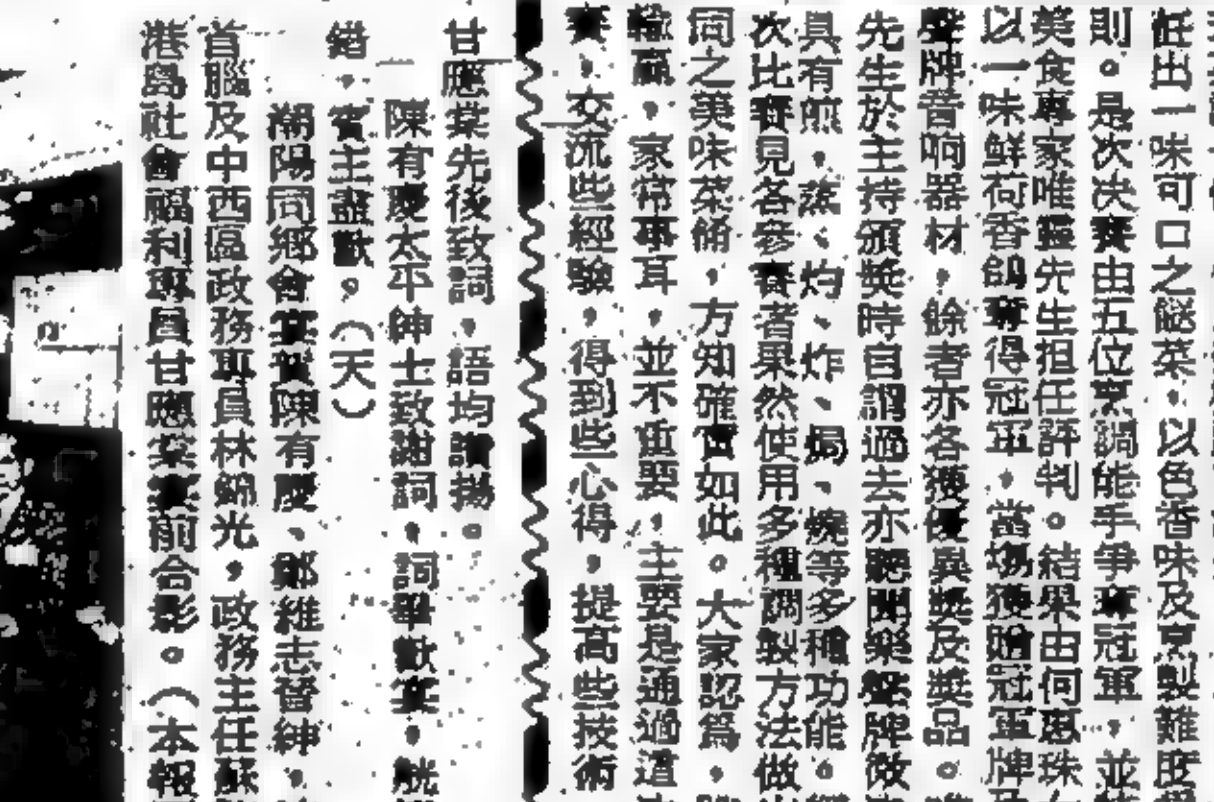 飪出一味可口之餸菜，以色香味及烹製難度
則。是次決賽由五位烹調能手爭奪冠軍，並
美食專家唯靈先生担任評判。結果由何思珠
以一味鮮荷香鴿奪得冠軍，當場獲贈冠軍牌
聲牌音响器材，餘者亦各獲優異獎及獎品。
先生於主持頒獎時自謂過去亦聽聞樂聲牌微
具有煎，蒸、灼、炸、焗、燒等多種功能。
次比賽見各參賽者果然使用多種調製方法做
同之美味菜餚，方知確實如此。大家認爲，
輸贏，家常事耳，並不重要，主要是通過這
賽，交流些經驗，得到些心得，提高些技術
甘應棠先後致詞，語均讚揚。
陳有慶太平紳士致謝詞，詞畢歡宴，觥
錯，賓主盡歡。（天）
潮陽同鄉會 陳有慶、鄭維志督紳、
首腦及中西區政務專員林錦光，政務主任蘇
港島社會福利專員甘應棠宴前合影。（本報